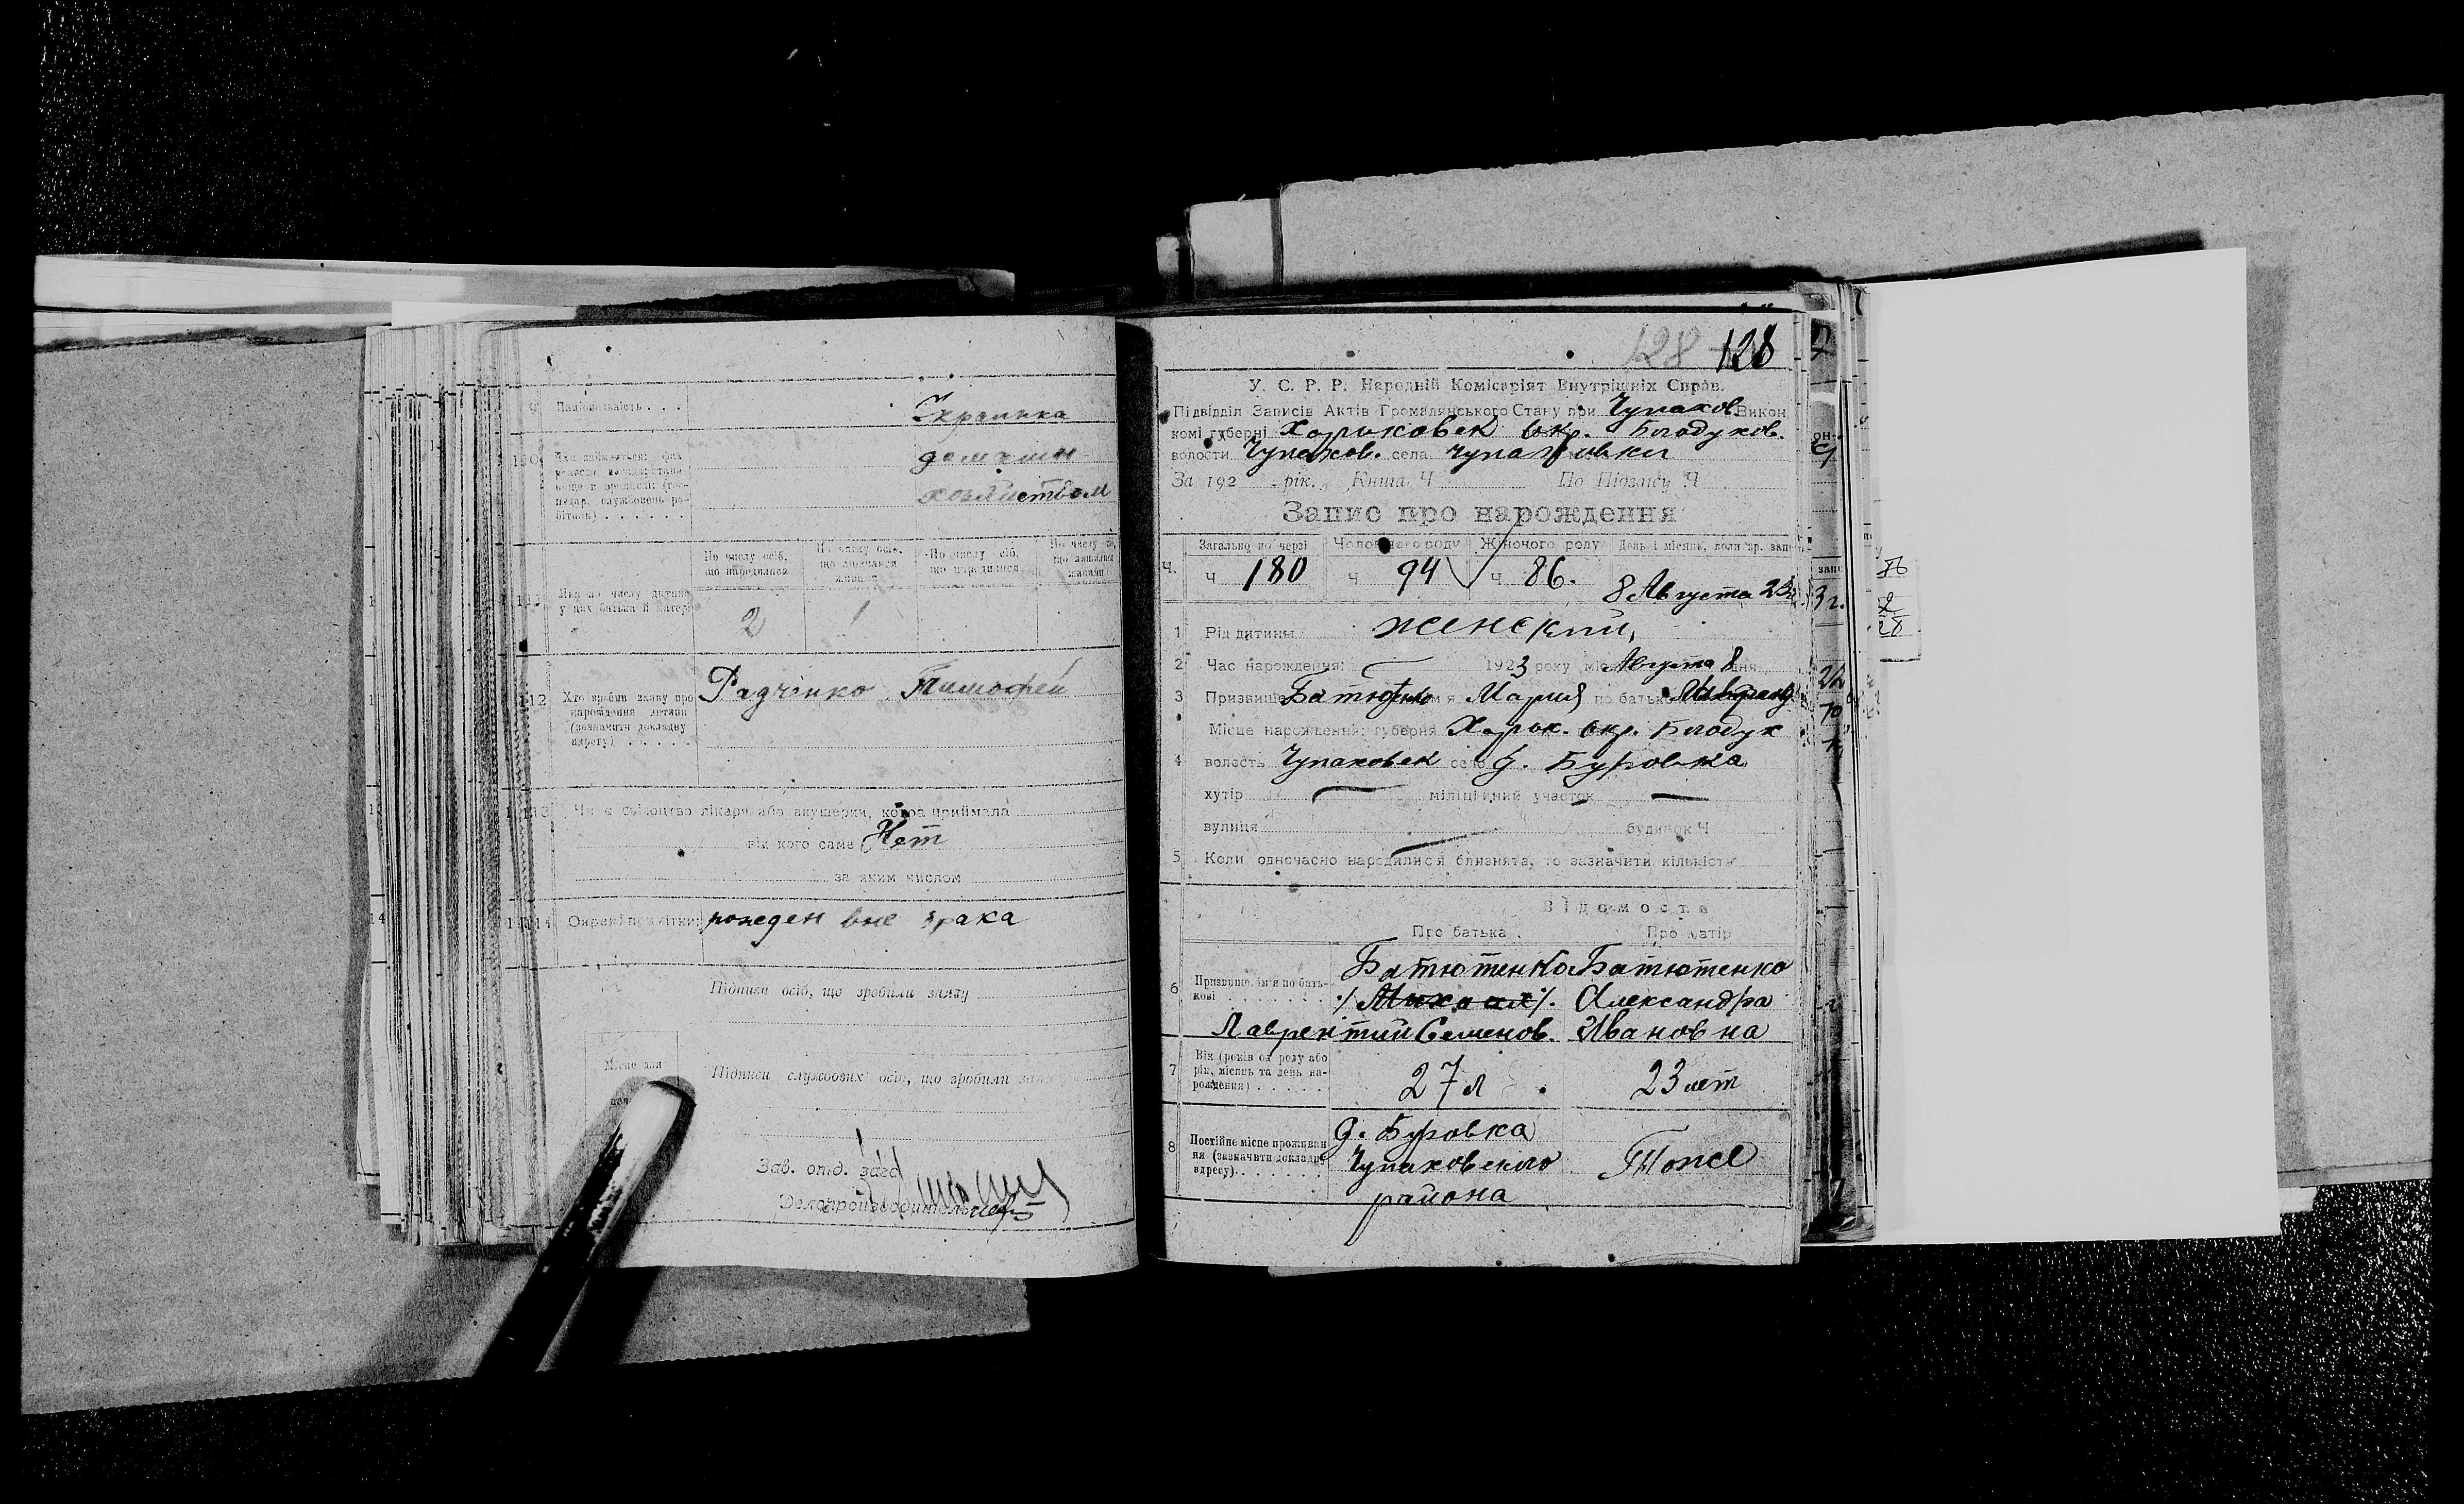 9 Національність . . . . Украинка
10 домашн
хозяйством
По числу осіб, що народилися
По числу осіб, що лишилися живими
По числу осіб, що народилися
По числу осіб, що лишилися живими
11 Яка по числу дитина у цих батька й матері
2 1
12 Хто зробив заяву про народження дитини (зазначити докладну адресу) . . . . . Радченко Тимофей
13 Чи є свідоцтво лікаря або акушерки, котра приймала
від кого саме Нет
за яким числом
14 Окремі помітки: рожден вне брака
Підписи осіб, що зробили заяву
Місце для
Підписи службових осіб, що зробили
Зав. отд. загс
Делопроизводитель
128 128
У. С. Р. Р. Народній Комісаріят Внутрішніх Справ.
Підвідділ Записів Актів Громадянського Стану при Чупахов Викон
комі губерні Харьковск окр. Богодухов.
волости Чупахов. села Чупаховки
За 192 рік. Книга Ч По Підзапису Ч
Запис про народження
Загально по черзі Чоловічого роду Жіночого роду День і місяць, коли зр. запи
Ч. Ч 180 Ч 94 Ч 86. 8 Августа 23г.
1 Рід дитини женский,
2 Час народження: 1923 року міс Августа 8 дня
3 Призвище Батютенко Мария по батькові Лаврен
Місце народження: губерня Харьк. окр. Богодух
4 волость Чупаховск село д. Буровка
хутір міліційний участок
вулиця будинок Ч
5 Коли одночасно народилися близнята, то зазначити кількість
Відомости
Про батька Про матір
6 Призвище, ім'я по батькові Батютенко Батютенко
Михаил Александра
Лаврентий Семенов. Ивановна
7 Вік (років од роду або рік, місяць та день народження) 27 л. 23 лет
8 Постійне місце проживання (зазначити докладно адресу) д. Буровка
Чупаховского Тоже
района